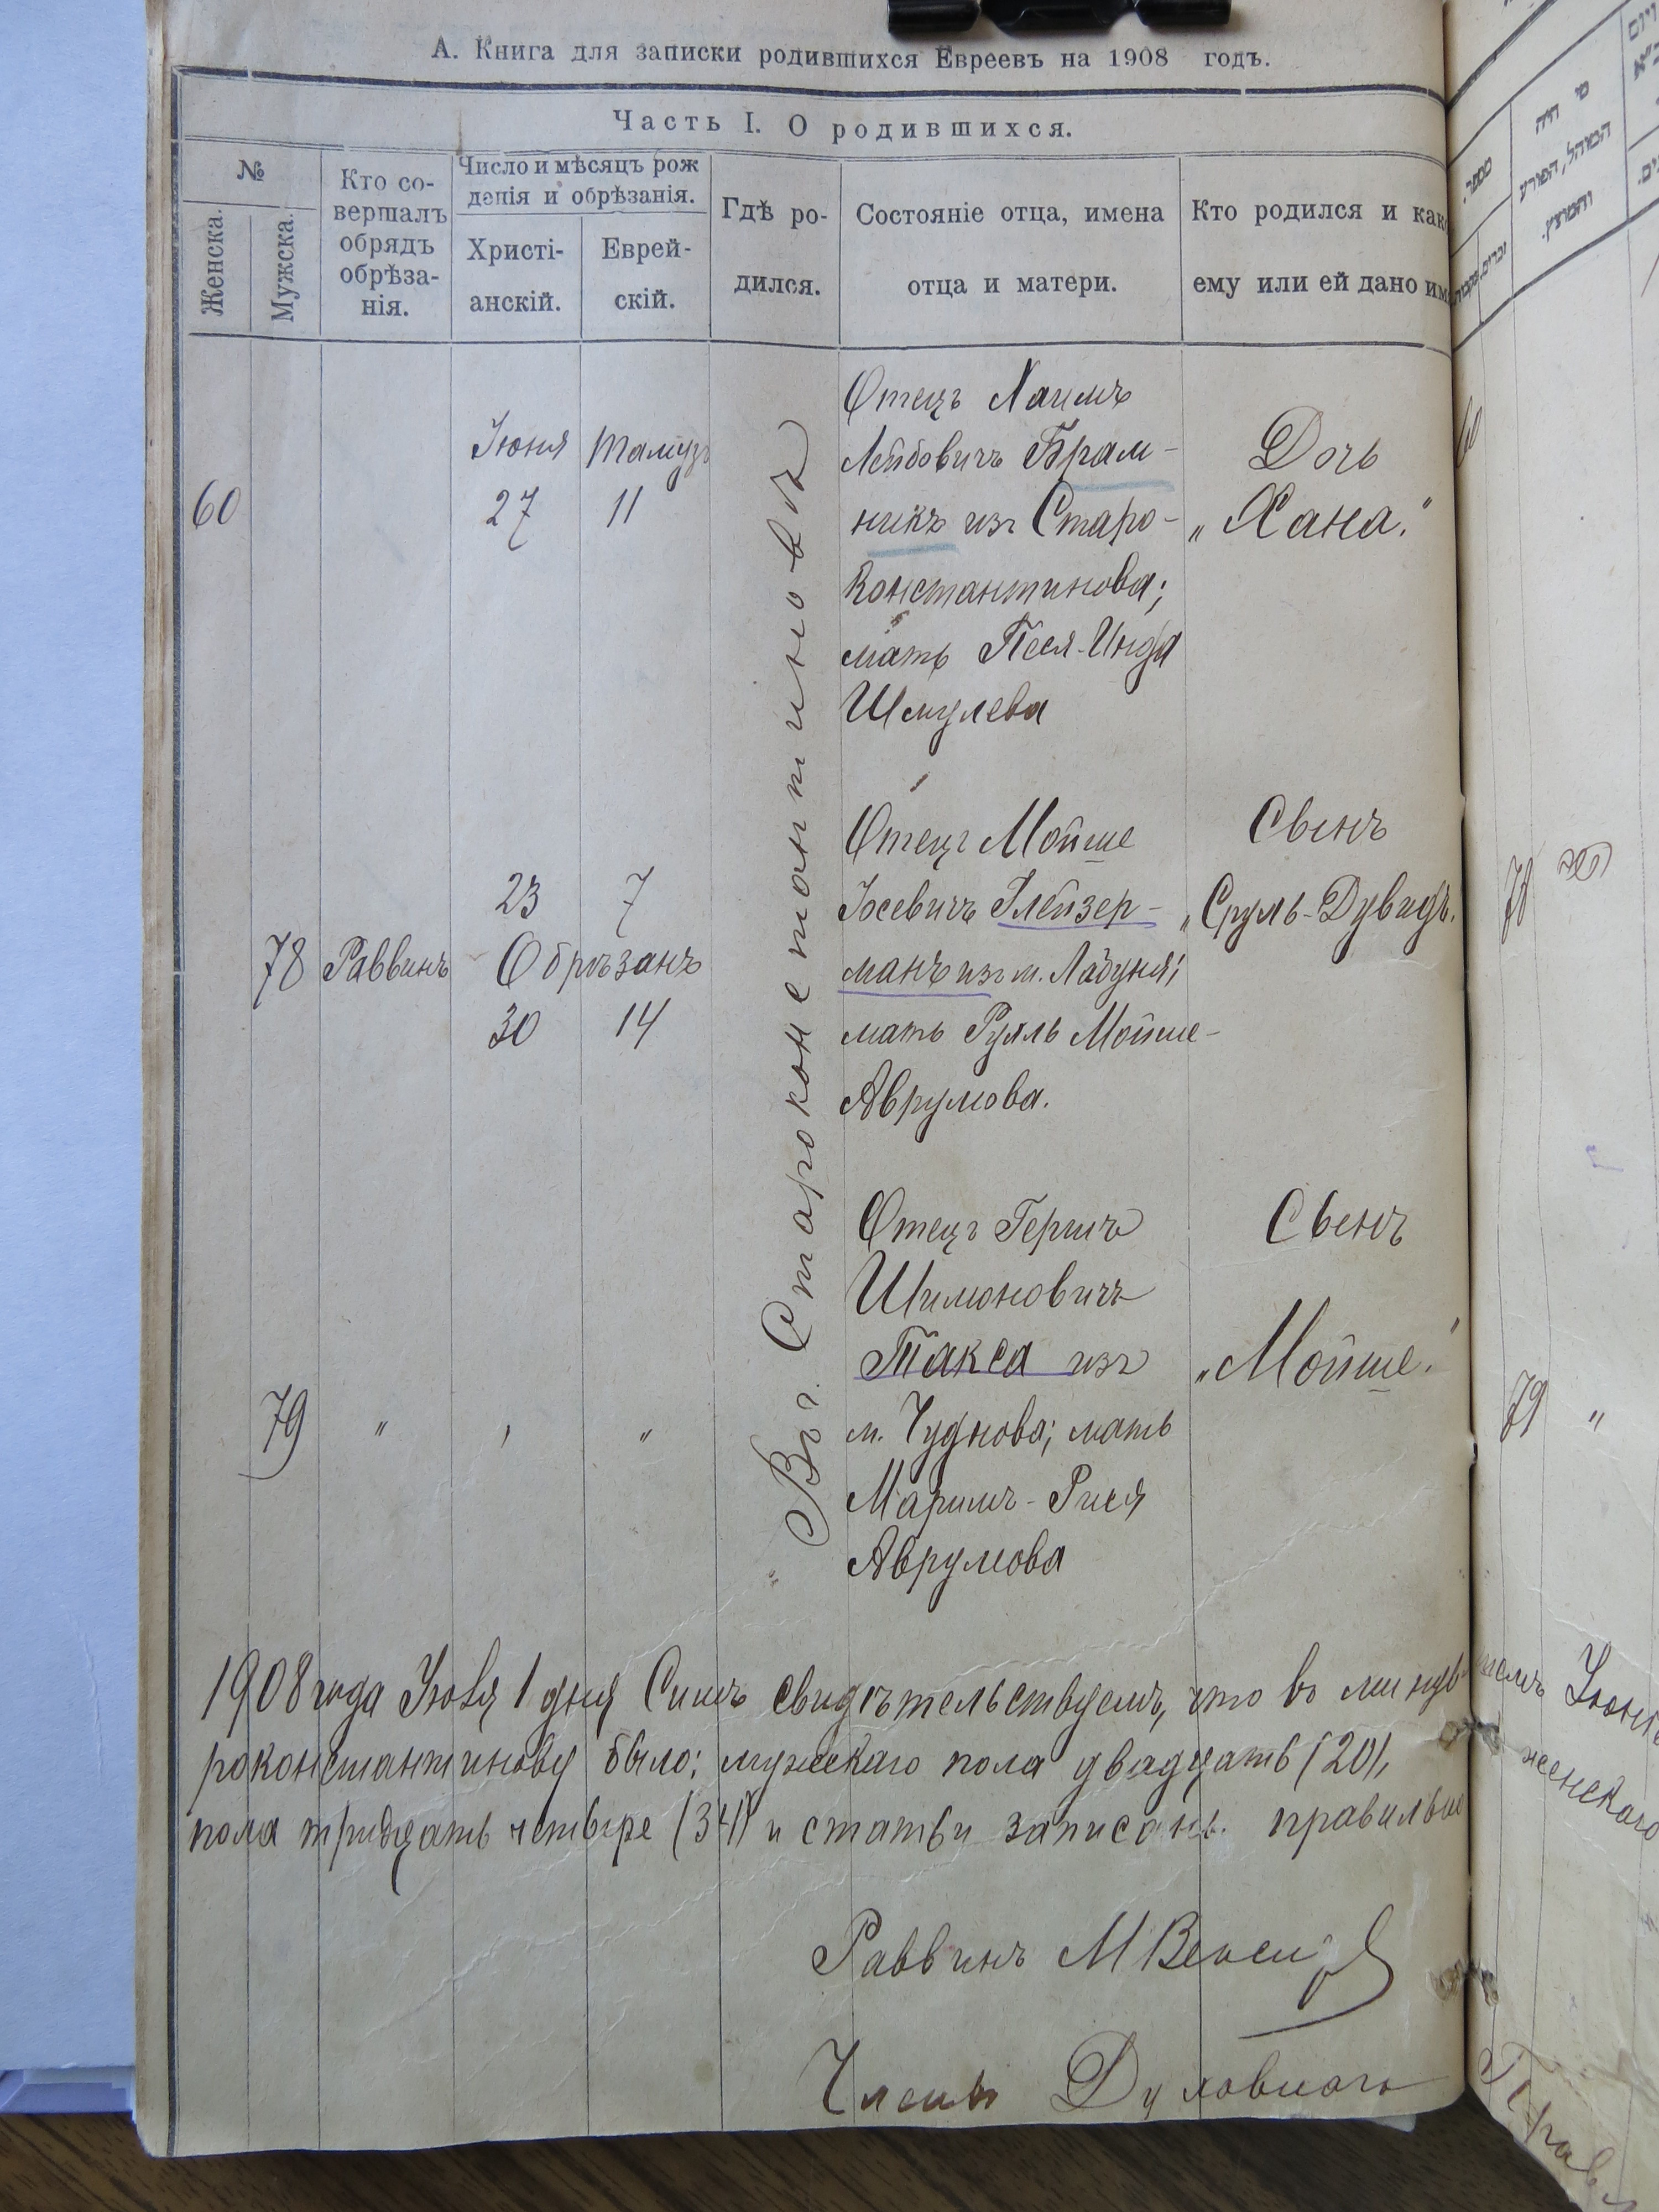 А. Книга для записки родившихся Евреевъ на 1908 годъ.
Часть I. О родившихся.
№
Женска.
Мужска.
Кто со-
вершалъ
обрядъ
обрѣза-
нія.
Число и мѣсяцъ рож
денія и обрѣзанія.
Христі-
анскій.
Еврей-
скій.
Гдѣ ро-
дился.
Состояніе отца, имена
отца и матери.
Кто родился и как
ему или ей дано им
Въ г. Староконстантиновѣ
60
Іюня Тамузъ
27 11
Отецъ Хаимъ
Лейбовичъ Брам-
никъ изъ Старо-
константинова;
мать Песя-Инда
Шмулева
Дочь
„Хана."
78 Раввинъ
23 7
Обрѣзанъ
30 14
Отецъ Мойше
Іосевичъ Глейзер-
манъ изъ м. Лабуня;
мать Рухль Мойше-
Аврумова.
Сынъ
„Сруль-Дувидъ.
79 " , "
Отецъ Гершъ
Шимоновичъ
Такса изъ
м. Чуднова; мать
Маримъ-Рися
Аврумова
Сынъ
„Мойше."
1908 года Іюля 1 дня Симъ свидѣтельствуемъ, что въ минув
роконстантинову было: мужскаго пола двадцать (20),
пола тридцать четыре (34) и статьи записаны правильно
Раввинъ М
Члены Духовнаго
מספר
מי היה
המוהל, הפורע
והמוצץ.
60
78
79 "
шемъ Іюнѣ
женскаго